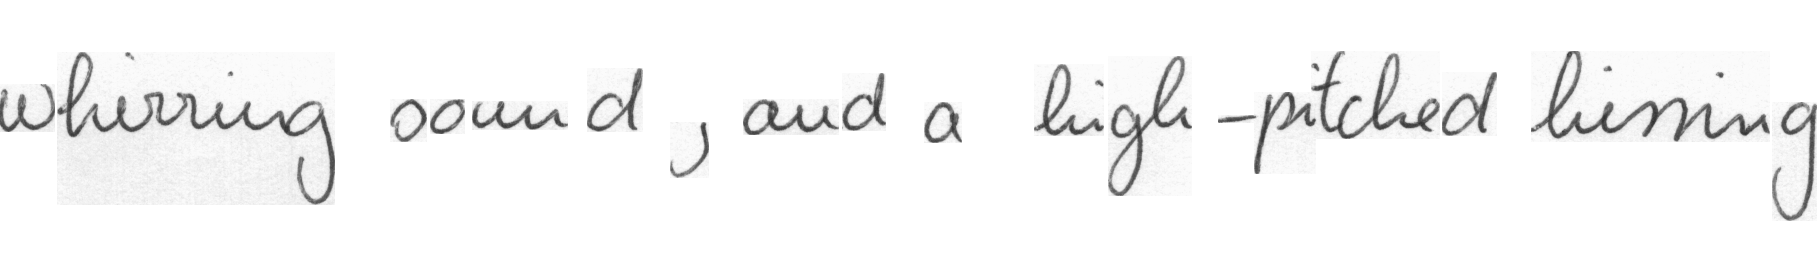 whirring sound, and a high-pitched hissing